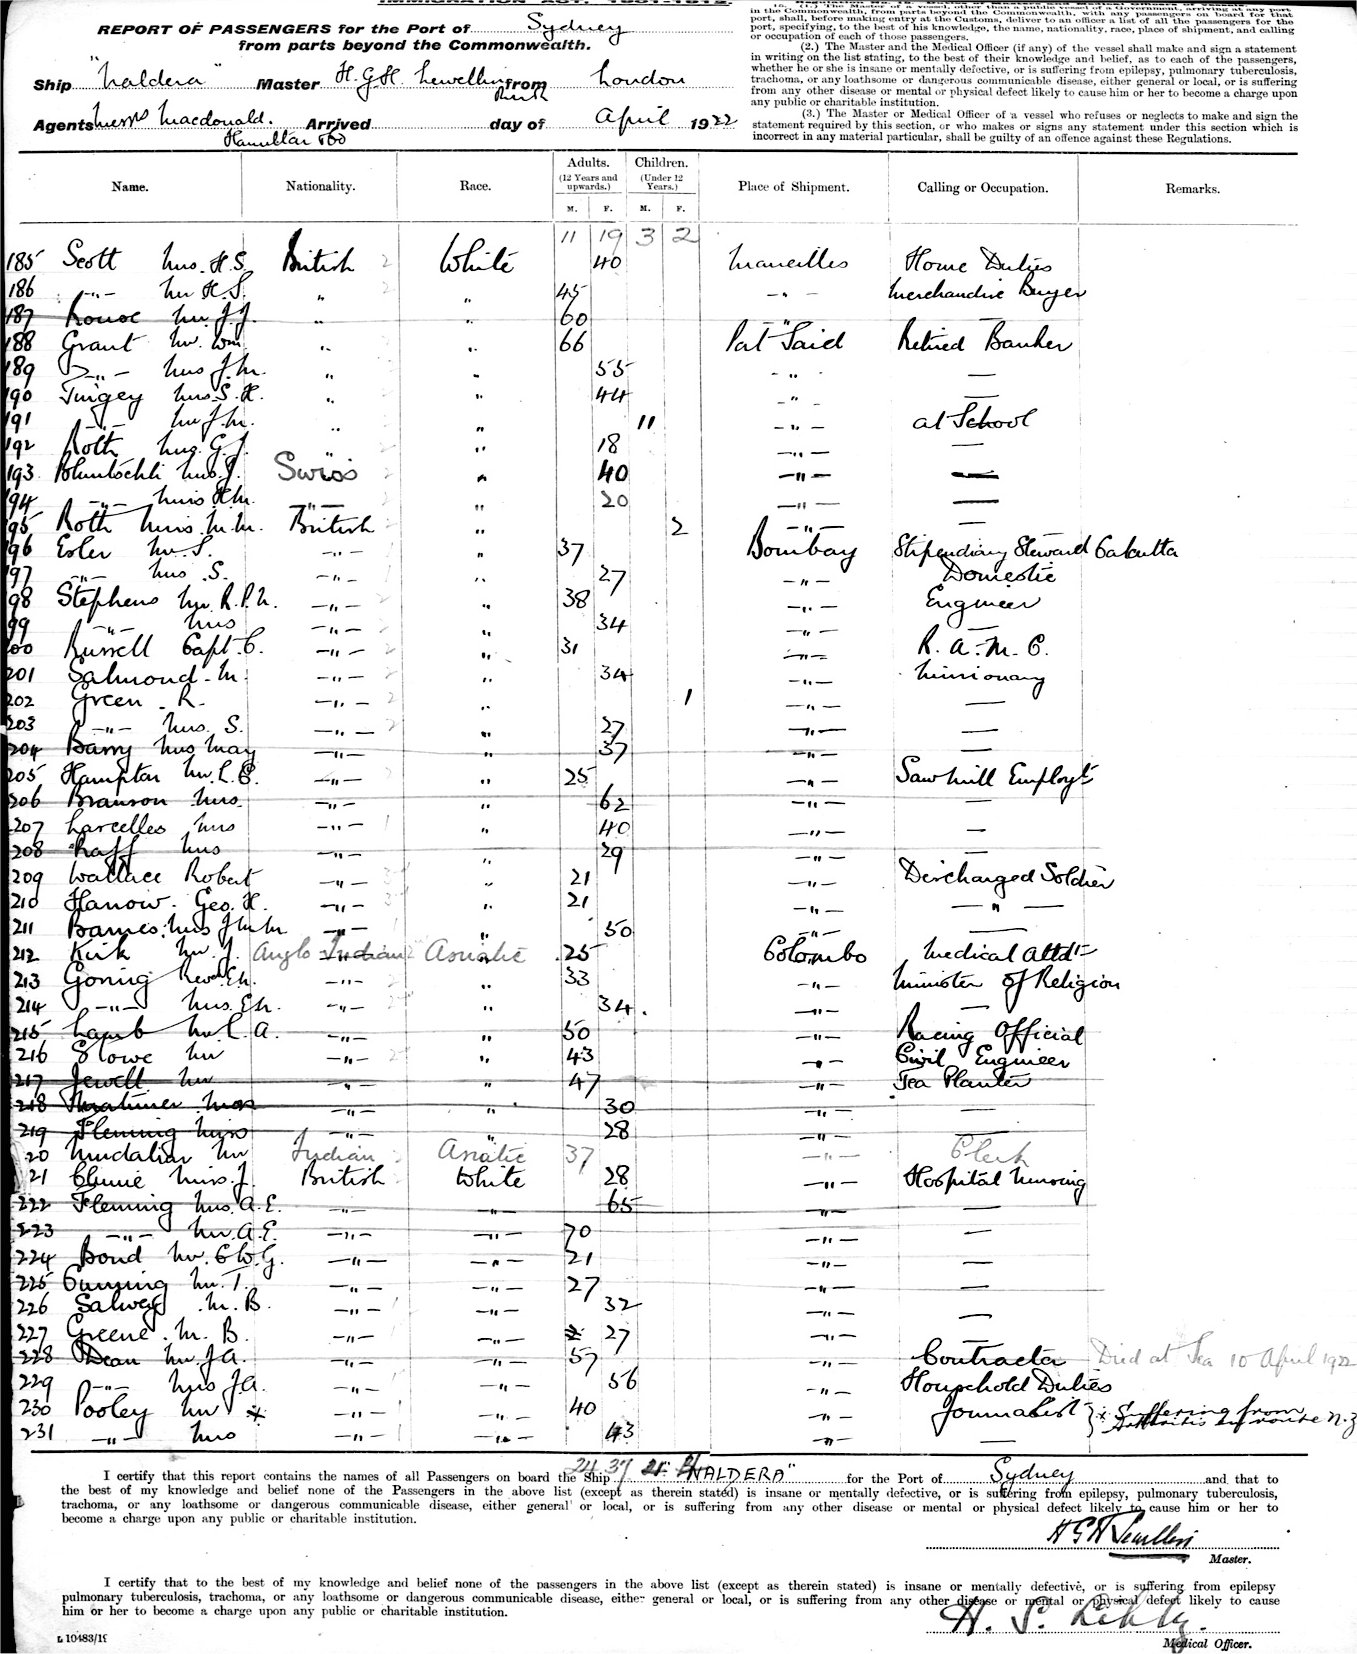 IMMIGRATION ACT, 1901-1912.
REPORT OF PASSENGERS for the Port of Sydney
from parts beyond the Commonwealth.
Ship "Naldera" Master H.G.H. Lewellin from London
Agents Messrs Macdonald. Arrived day of April 1922
Hamilton & Co
in the Commonwealth, from parts beyond the Commonwealth, with any passengers on board for that
port, shall, before making entry at the Customs, deliver to an officer a list of all the passengers for the
port, specifying, to the best of his knowledge, the name, nationality, race, place of shipment, and calling
or occupation of each of those passengers.
(2.) The Master and the Medical Officer (if any) of the vessel shall make and sign a statement
in writing on the list stating, to the best of their knowledge and belief, as to each of the passengers,
whether he or she is insane or mentally defective, or is suffering from epilepsy, pulmonary tuberculosis,
trachoma, or any loathsome or dangerous communicable disease, either general or local, or is suffering
from any other disease or mental or physical defect likely to cause him or her to become a charge upon
any public or charitable institution.
(3.) The Master or Medical Officer of a vessel who refuses or neglects to make and sign the
statement required by this section, or who makes or signs any statement under this section which is
incorrect in any material particular, shall be guilty of an offence against these Regulations.
Name. Nationality. Race. Adults. (12 Years and upwards.) M. F. Children. (Under 12 Years.) M. F. Place of Shipment. Calling or Occupation. Remarks.
11 19 3 2
185 Scott Mrs. H.S. British White 40 Marseilles Home Duties
186 -"- Mr H.S. " " 45 -"- Merchandise Buyer
187 Rouse Mr J.J. " " 60 " —
188 Grant Mr. Wm " " 66 Port Said Retired Banker
189 -"- Mrs J.M. " " 55 -"- —
190 Tingey Mrs. S.H. " " 44 -"- —
191 -"- Mr J.M. " " 11 -"- at School
192 Roth Mrs. G.J. " " 18 -"- —
193 Bluntschli Mrs. J. Swiss " 40 -"- —
194 -"- Miss H.M. -"- " 20 -"- —
195 Roth Miss M.M. British " 2 -"- —
196 Esler Mr. S. -"- " 37 Bombay Stipendiary Steward Calcutta
197 -"- Mrs. S. -"- 27 -"- Domestic
98 Stephens Mr. R.P.N. -"- " 38 -"- Engineer
99 -"- Mrs -"- " 34 -"- —
00 Russell Capt. C. -"- " 31 -"- R.A.M.C.
201 Salmond. M. -"- " 34 -"- Missionary
202 Green. R. -"- " 1 -"- —
203 -"- Mrs. S. -"- " 27 -"- —
204 Barry Mrs May -"- " 37 -"- —
205 Hampton Mr. L.C. -"- " 25 -"- Sawmill Employé
206 Branson Mrs. -"- " 62 -"- —
207 Larcelles Mrs -"- " 40 -"- —
208 Raff Mrs -"- " 29 -"- —
209 Wallace Robert -"- " 21 -"- Discharged Soldier
210 Hanow. Geo. H. -"- " 21 -"- — " —
211 Barnes. Mrs J.M.M. -"- " 50 -"- —
212 Kirk Mr. J. Anglo Indian Asiatic 25 Colombo Medical Attdt
213 Goring Revd. E.H. -"- " 33 -"- Minister of Religion
214 -"- Mrs. E.H. -"- " 34 -"- —
215 Lamb Mr. L.A. -"- " 50 -"- Racing Official
216 Stowe Mr -"- " 43 -"- Civil Engineer
217 Jewell Mr " " 47 -"- Tea Planter
218 Miss -"- " 30 -"- —
219 Fleming Miss -"- " 28 -"- —
20 Mudaliar Mr Indian Asiatic 37 -"- Clerk
21 Clunie Miss. J. British White 28 -"- Hospital Nursing
222 Fleming Mrs. A.E. -"- -"- 65 -"- —
223 -"- Mr. A.E. -"- -"- 70 -"- —
224 Bond Mr. C.W.G. -"- -"- 21 -"- —
225 Cumming Mr. T. -"- -"- 27 -"- —
226 Salwey .M. B. -"- -"- 32 -"- —
227 Greene. M. B. -"- -"- 27 -"- —
228 Dean Mr J.A. -"- -"- 57 -"- Contractor Died at Sea 10 April 1922
229 -"- Mrs J.A. -"- -"- 56 -"- Household Duties
230 Pooley Mr x -"- -"- 40 -"- Journalist x Suffering from
231 -"- Mrs -"- -"- 43 -"- — Arthritis en route N.Z.
24 37
I certify that this report contains the names of all Passengers on board the Ship "NALDERA" for the Port of Sydney and that to
the best of my knowledge and belief none of the Passengers in the above list (except as therein stated) is insane or mentally defective, or is suffering from epilepsy, pulmonary tuberculosis,
trachoma, or any loathsome or dangerous communicable disease, either general or local, or is suffering from any other disease or mental or physical defect likely to cause him or her to
become a charge upon any public or charitable institution.
H G H Lewellin
Master.
I certify that to the best of my knowledge and belief none of the passengers in the above list (except as therein stated) is insane or mentally defective, or is suffering from epilepsy
pulmonary tuberculosis, trachoma, or any loathsome or dangerous communicable disease, either general or local, or is suffering from any other disease or mental or physical defect likely to cause
him or her to become a charge upon any public or charitable institution.
H. S.
Medical Officer.
L 10483/19